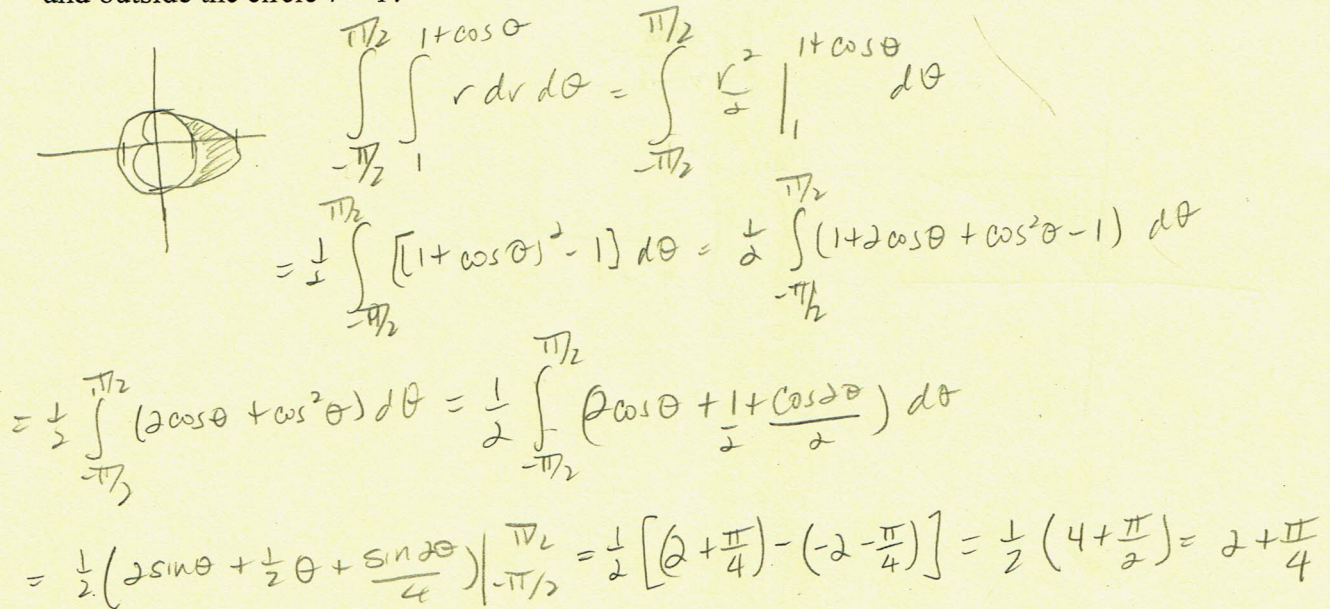 and outside the circle r = 1.
∫_{-π/2}^{π/2} ∫_{1}^{1+cosθ} r dr dθ = ∫_{-π/2}^{π/2} r²/2 |_{1}^{1+cosθ} dθ
= 1/2 ∫_{-π/2}^{π/2} [(1+cosθ)² - 1] dθ = 1/2 ∫_{-π/2}^{π/2} (1+2cosθ + cos²θ - 1) dθ
= 1/2 ∫_{-π/2}^{π/2} (2cosθ + cos²θ) dθ = 1/2 ∫_{-π/2}^{π/2} (2cosθ + 1/2 + cos2θ/2) dθ
= 1/2 (2sinθ + 1/2 θ + sin2θ/4) |_{-π/2}^{π/2} = 1/2 [(2 + π/4) - (-2 - π/4)] = 1/2 (4 + π/2) = 2 + π/4